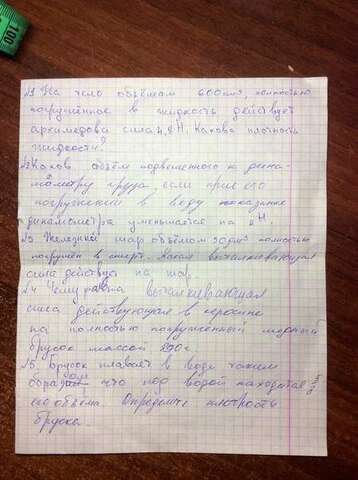 100
№1 На тело объёмом 600 см³, полностью
погружённое в жидкость действует
архимедова сила 4,8Н. Какова плотность
жидкости?
№2 Каков объём подвешенного к дина-
мометру груза, если при его
погружении в воду показание
динамометра уменьшается на 2Н.
№3 Железный шар объёмом полностью
погружён в спирт. Какая выталкивающая
сила действует на шар.
№4 Чему равна выталкивающая
сила действующая в керосине
на полностью погруженный медный
брусок массой
№5 Брусок плавает в воде таким
образом что под водой находится
его объёма. Определите плотность
бруска.